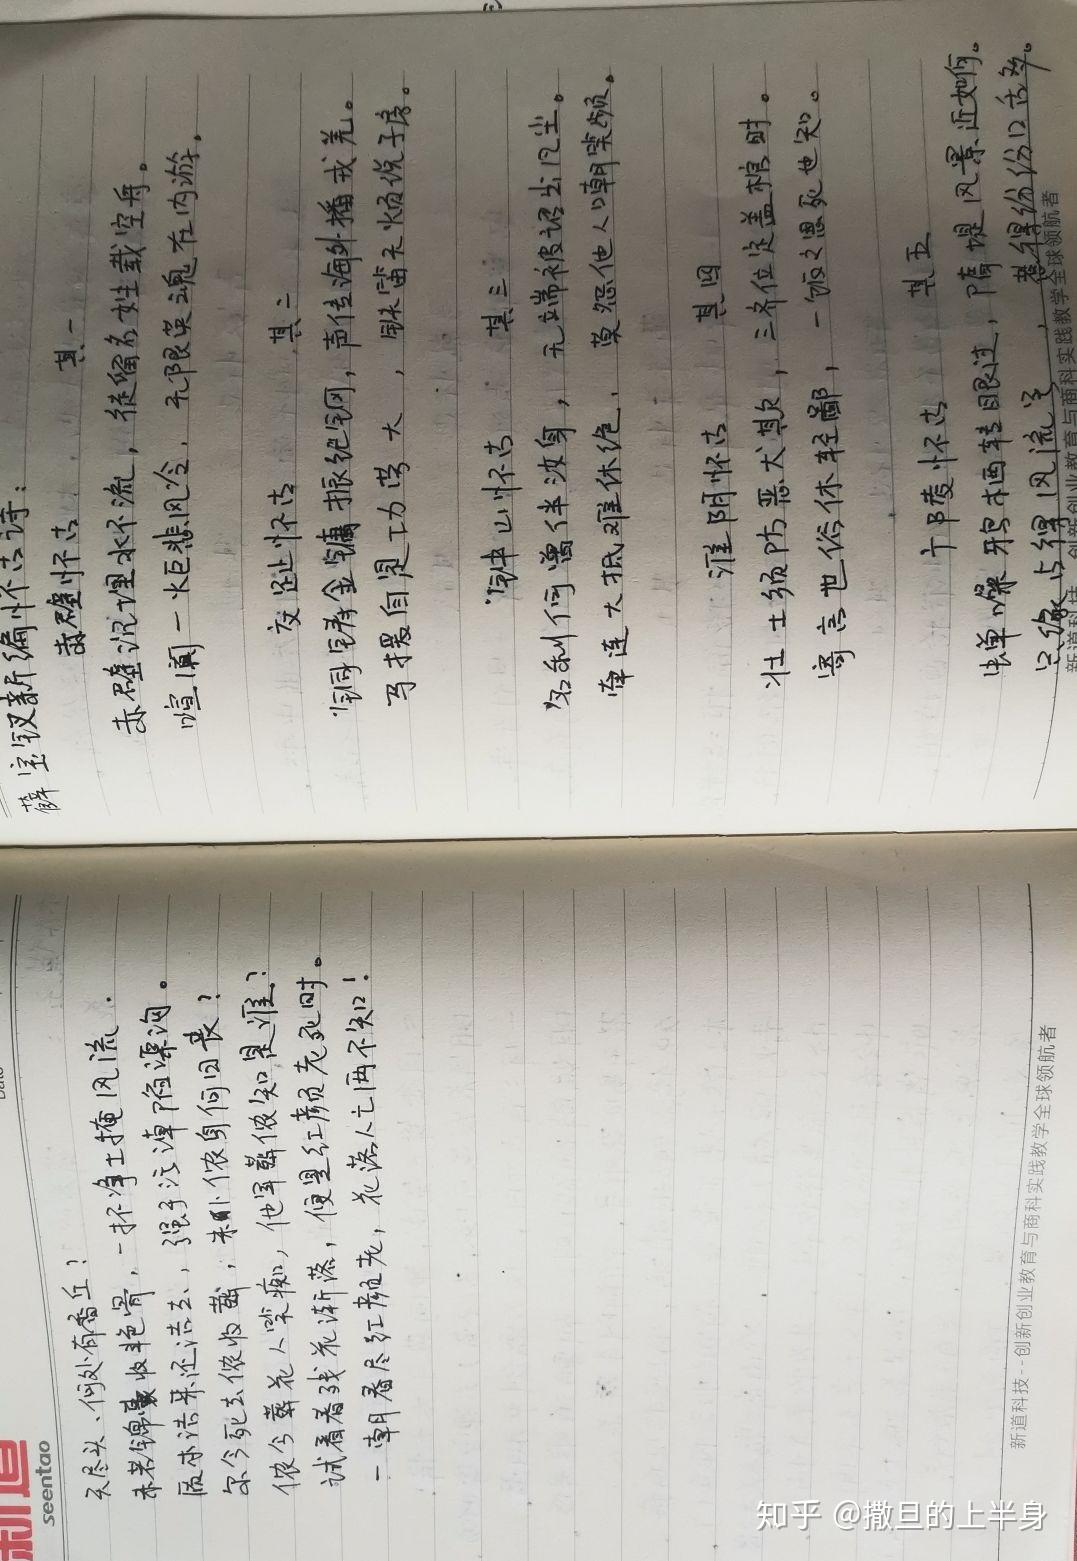 seentao
天尽头、何处有香丘？
未若锦囊收艳骨，一抔净土掩风流．
质本洁来还洁去，强于污淖陷渠沟。
尔今死去侬收葬，未卜侬身何日丧？
侬今葬花人笑痴，他年葬侬知是谁？
试看看残花渐落，便是红颜老死时。
一朝春尽红颜老，花落人亡两不知！
新道科技--创新创业教育与商科实践教学全球领航者
薛宝钗新编怀古诗：
赤壁怀古 其一
赤壁沉埋水不流，徒留名姓载空舟。
喧阗一炬悲风冷，无限英魂在内游。
交趾怀古 其二
铜铸金镛振纪纲，声传海外播戎羌。
马援自是功劳大，铁笛无烦说子房。
钟山怀古 其三
名利何曾伴汝身，无端被诏出凡尘。
牵连大抵难休绝，莫怨他人嘲笑频。
淮阴怀古 其四
壮士须防恶犬欺，三齐位定盖棺时。
寄言世俗休轻鄙，一饭之恩死也知。
广陵怀古 其五
蝉噪鸦栖转眼过，隋堤风景近如何。
只缘占得风流号，惹得纷纷口舌多。
新道科技--创新创业教育与商科实践教学全球领航者
知乎 @撒旦的上半身